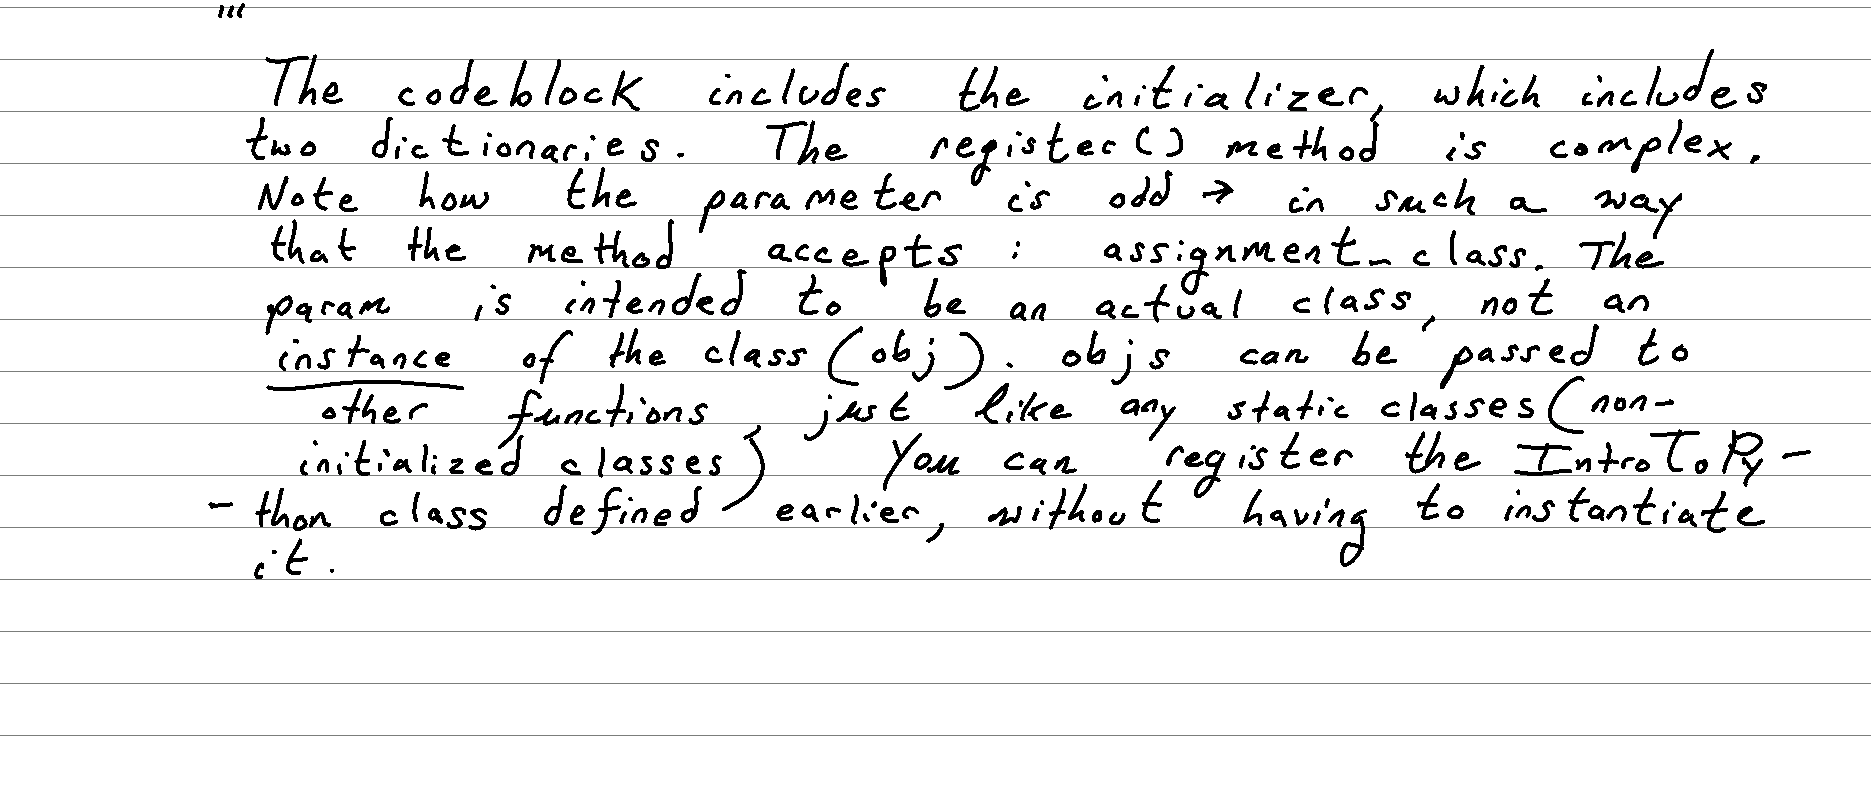 '''
The codeblock includes the initializer, which includes
two dictionaries. The register() method is complex.
Note how the parameter is odd → in such a way
that the method accepts : assignment_class. The
param is intended to be an actual class, not an
instance of the class (obj). objs can be passed to
other functions, just like any static classes (non-
initialized classes) You can register the IntroToPy-
- thon class defined earlier, without having to instantiate
it.